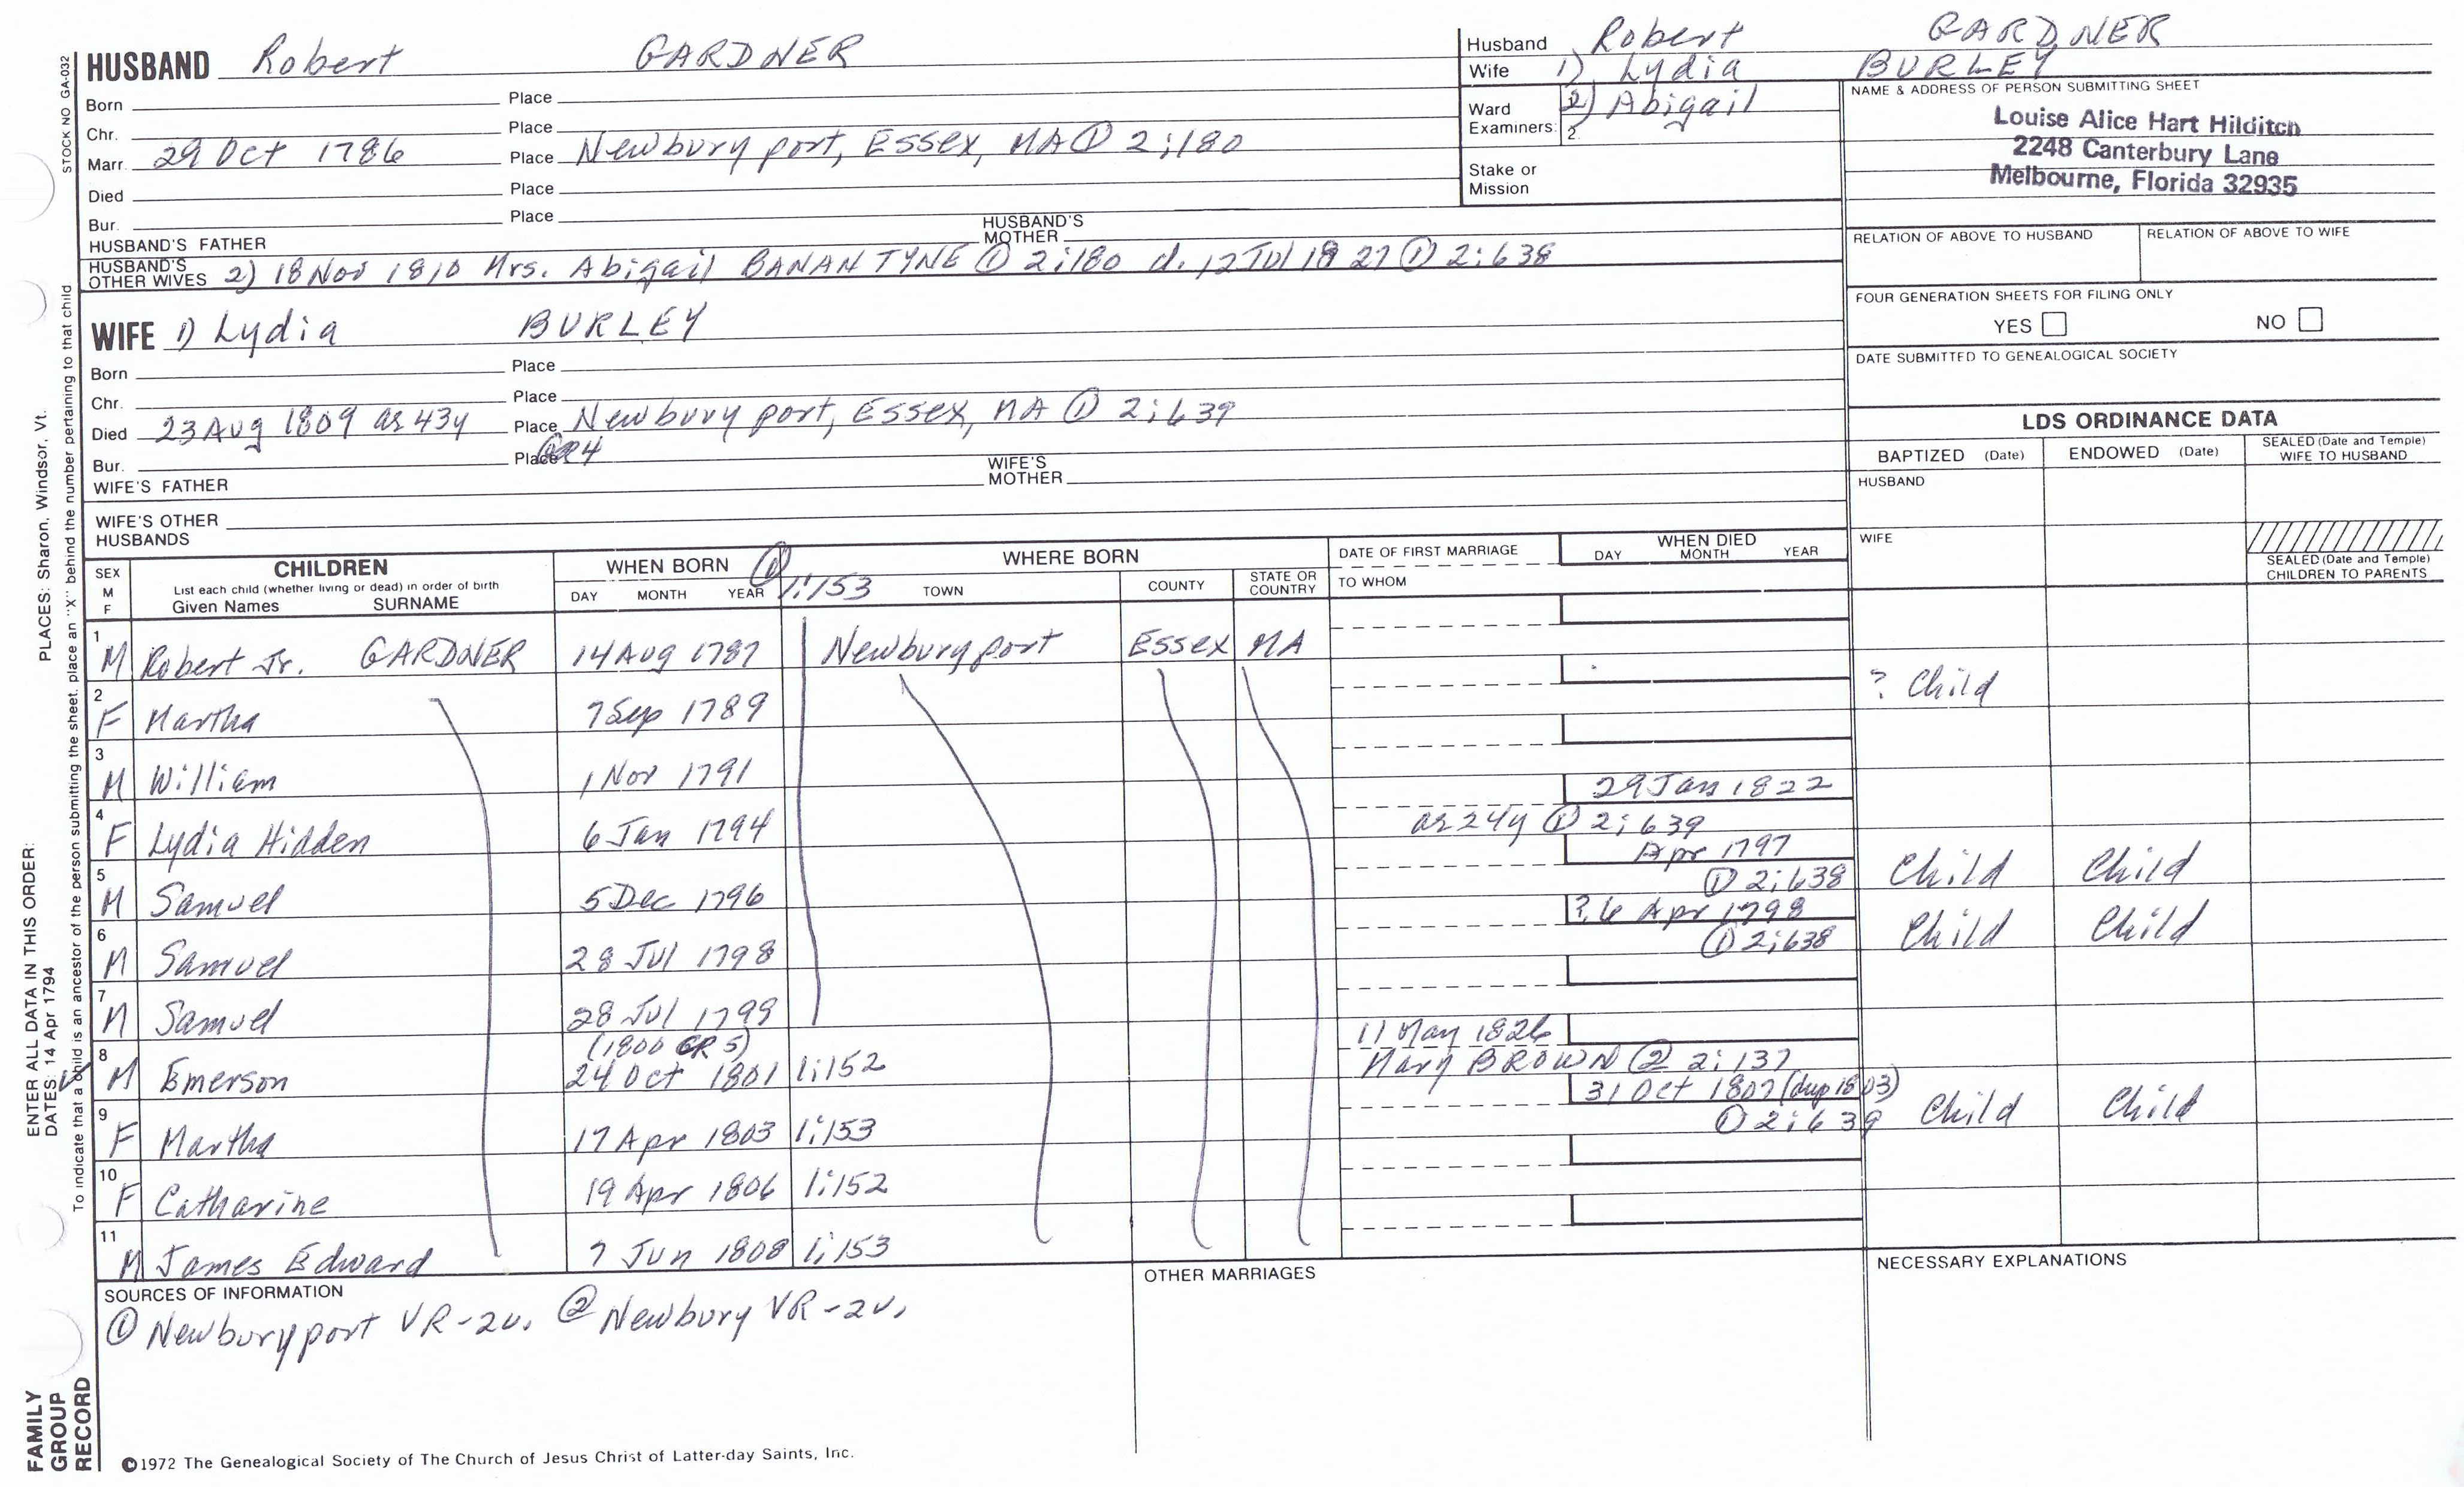 HUSBAND Robert GARDNER
Born Place
Chr. Place
Marr. 29 Oct 1786 Place Newburyport, Essex, MA ① 2:180
Died Place
Bur. Place
HUSBAND'S FATHER HUSBAND'S MOTHER
HUSBAND'S OTHER WIVES 2) 18 Nov 1810 Mrs. Abigail BANANTYNE ① 2:180 d. 12 Jul 1827 ① 2:638
WIFE 1) Lydia BURLEY
Born Place
Chr. Place
Died 23 Aug 1809 ae 43y Place Newburyport, Essex, MA ① 2:639
Bur. Place
WIFE'S FATHER WIFE'S MOTHER
WIFE'S OTHER HUSBANDS
Husband Robert GARDNER
Wife 1) Lydia BURLEY
Ward Examiners: 2) Abigail
2.
Stake or Mission
NAME & ADDRESS OF PERSON SUBMITTING SHEET
Louise Alice Hart Hilditch
2248 Canterbury Lane
Melbourne, Florida 32935
RELATION OF ABOVE TO HUSBAND RELATION OF ABOVE TO WIFE
FOUR GENERATION SHEETS FOR FILING ONLY
YES NO
DATE SUBMITTED TO GENEALOGICAL SOCIETY
LDS ORDINANCE DATA
BAPTIZED (Date) ENDOWED (Date) SEALED (Date and Temple) WIFE TO HUSBAND
HUSBAND
WIFE
SEALED (Date and Temple) CHILDREN TO PARENTS
SEX M F
CHILDREN
List each child (whether living or dead) in order of birth
Given Names SURNAME
WHEN BORN ①
DAY MONTH YEAR 1:153
WHERE BORN
TOWN COUNTY STATE OR COUNTRY
DATE OF FIRST MARRIAGE
TO WHOM
WHEN DIED
DAY MONTH YEAR
1 M Robert Jr. GARDNER 14 Aug 1787 Newburyport Essex MA
2 F Martha 7 Sep 1789 ? Child
3 M William 1 Nov 1791
4 F Lydia Hidden 6 Jan 1794 29 Jan 1822
ae 24y ① 2:639
5 M Samuel 5 Dec 1796 Apr 1797 Child Child
① 2:638
6 M Samuel 28 Jul 1798 ?6 Apr 1798 Child Child
① 2:638
7 M Samuel 28 Jul 1799
(1800 GR5)
8 M Emerson 24 Oct 1801 1:152 11 May 1826
Mary BROWN ② 2:137
9 F Martha 17 Apr 1803 1:153 31 Oct 1807 (dup 1803) Child Child
① 2:639
10 F Catharine 19 Apr 1806 1:152
11 M James Edward 7 Jun 1808 1:153
SOURCES OF INFORMATION
① Newburyport VR-2v. ② Newbury VR-2v.
OTHER MARRIAGES
NECESSARY EXPLANATIONS
©1972 The Genealogical Society of The Church of Jesus Christ of Latter-day Saints, Inc.
STOCK NO GA-032
PLACES: Sharon, Windsor, Vt.
To indicate that a child is an ancestor of the person submitting the sheet, place an "X" behind the number pertaining to that child
ENTER ALL DATA IN THIS ORDER:
DATES: 14 Apr 1794
FAMILY
GROUP
RECORD